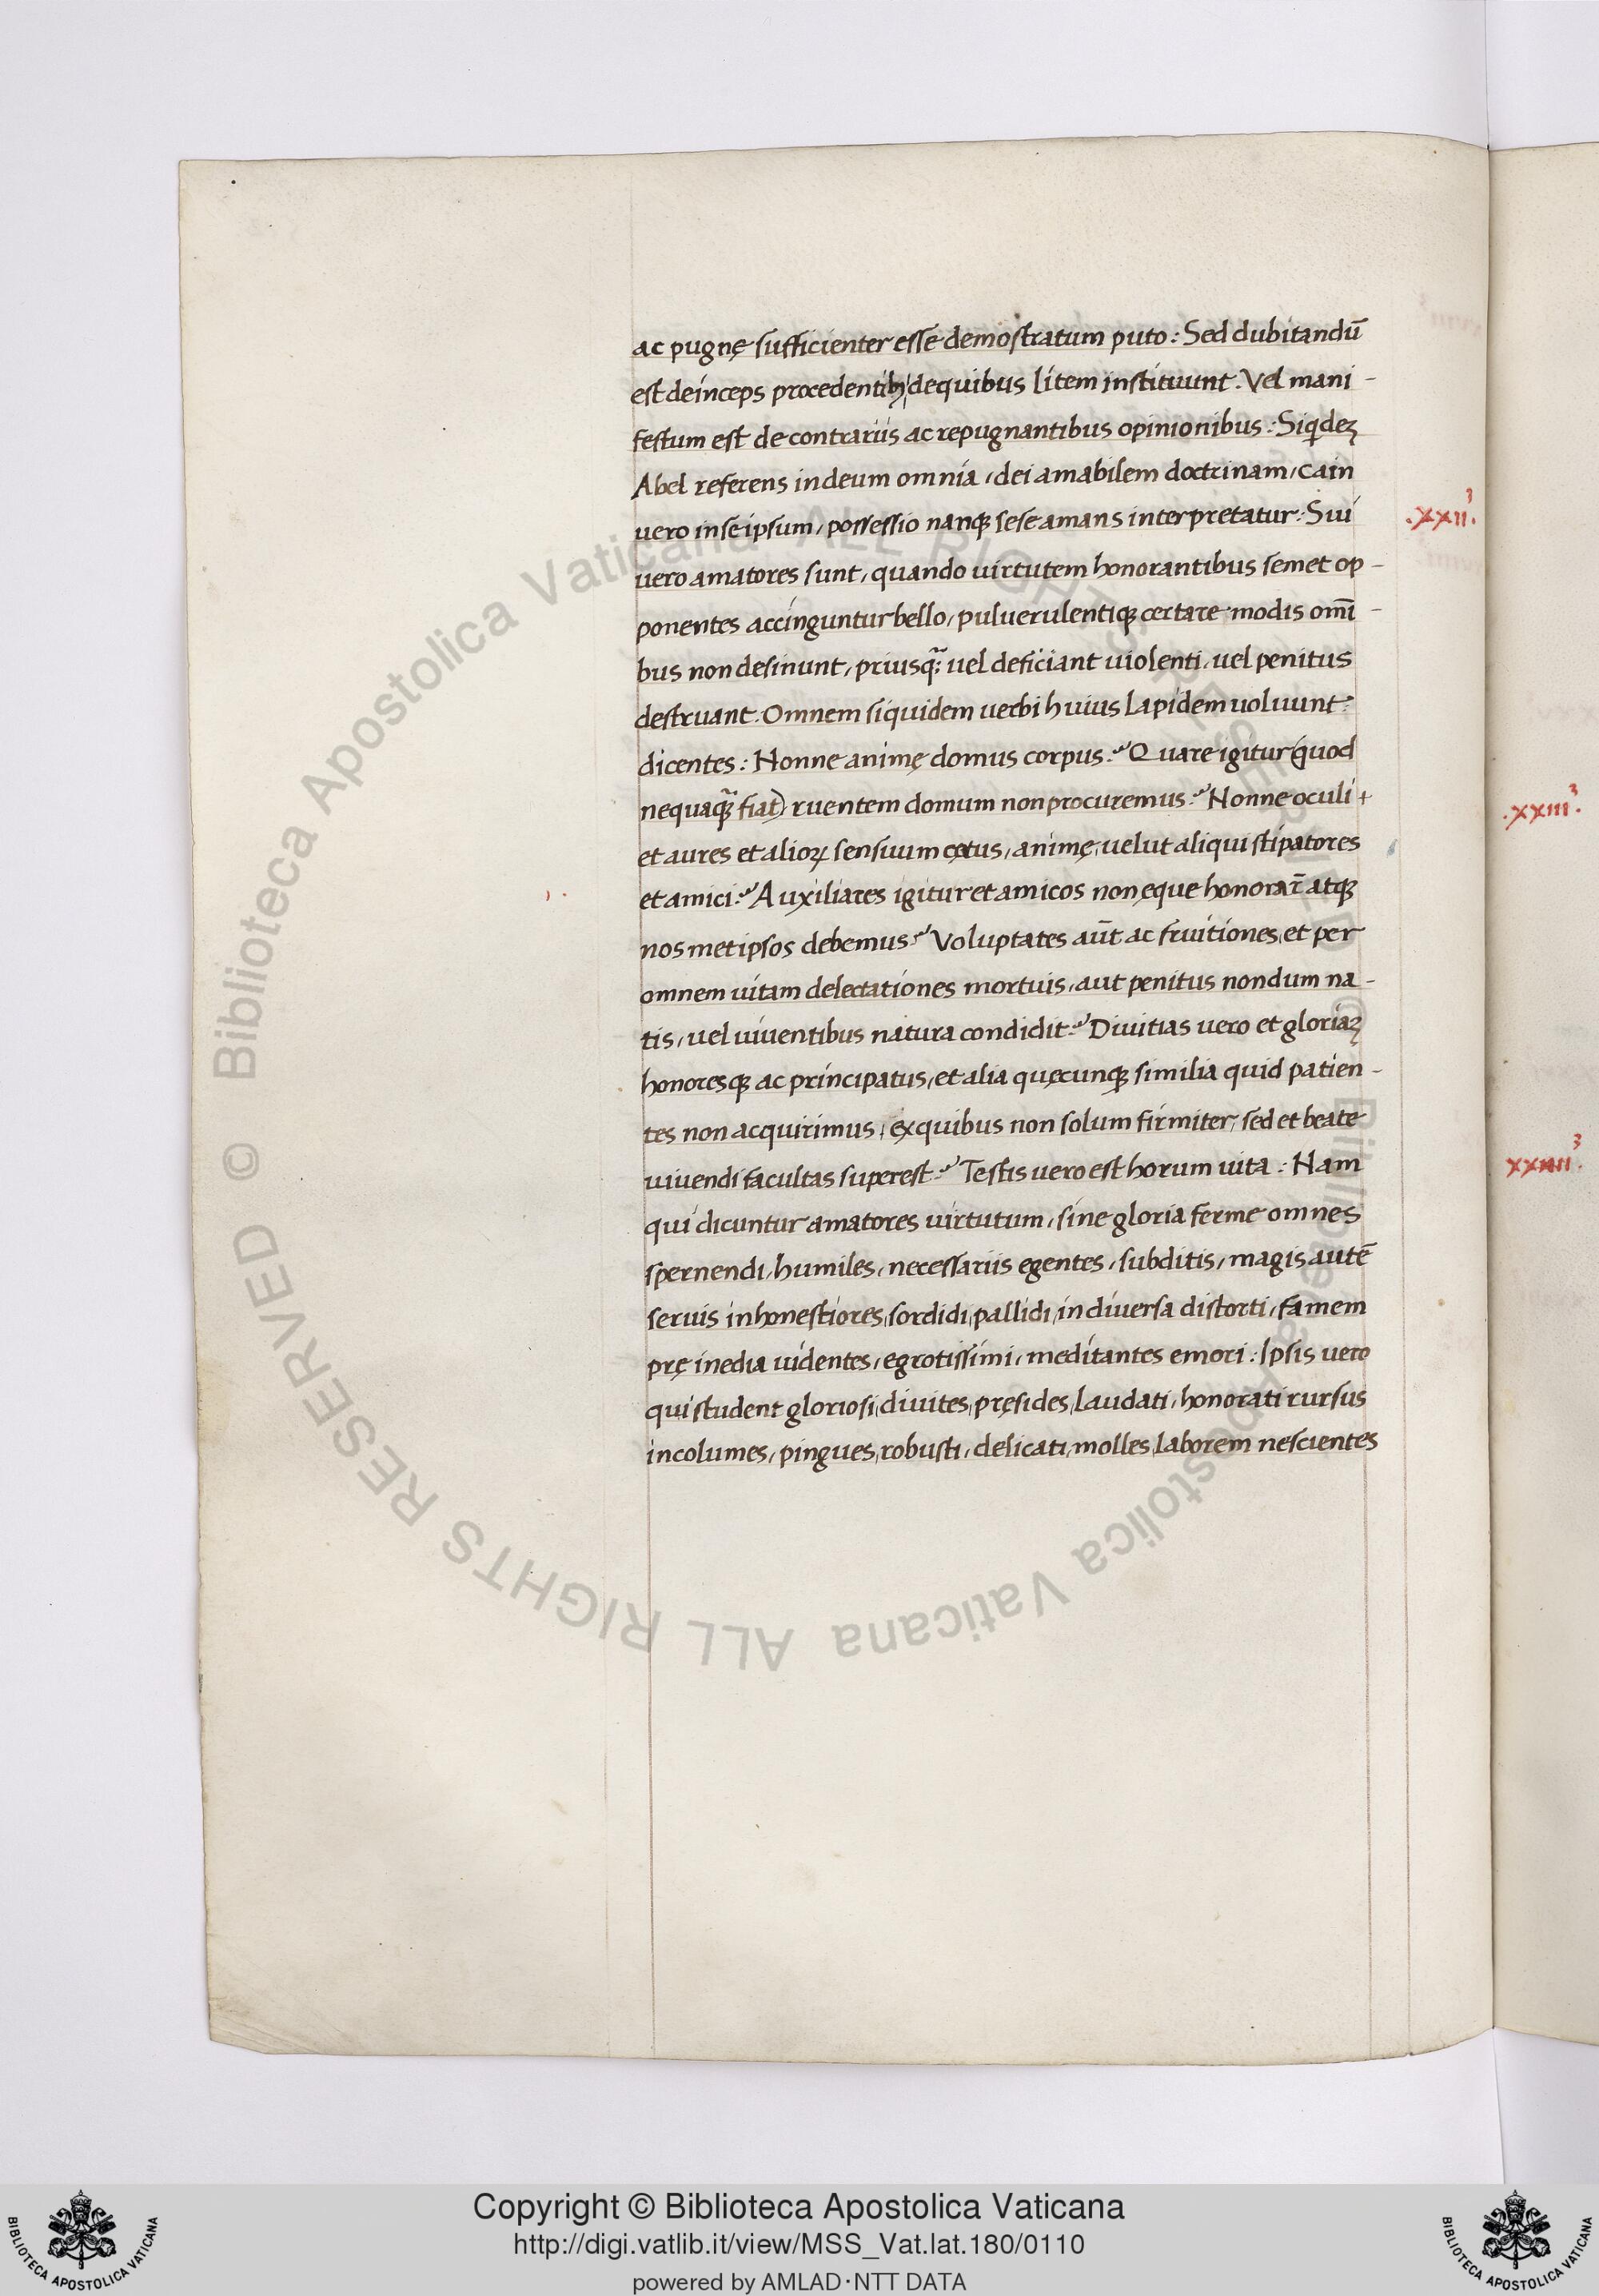 ac pugnę sufficienter esse demostratum puto : Sed dubitandū
est deinceps procedentib; de quibus litem instituunt . Vel mani -
festum est de contrariis ac repugnantibus opinionibus : Siqdeʒ
Abel referens in deum omnia , dei amabilem doctrinam , Cain
uero in se ipsum , possessio nanq; sese amans interpretatur : Sui
.XXII.
uero amatores sunt , quando uirtutem honorantibus semet op -
ponentes accinguntur bello , puluerulentiq; certare modis omī -
bus non desinunt , priusq̃; uel deficiant uiolenti , uel penitus
destruant . Omnem siquidem uerbi huius lapidem uoluunt :
dicentes : Nonne animę domus corpus ? Quare igitur (quod
nequaq̃; fiat) ruentem domum non procuremus ? Nonne oculi +
.XXIII.
et aures et alioꝝ sensuum cętus , animę , uelut aliqui stipatores
et amici ? Auxiliares igitur et amicos non ęque honorar̄ atq;
nosmetipsos debemus ? Voluptates aūt ac fruitiones , et per
omnem uitam delectationes mortuis , aut penitus nondum na -
tis , uel uiuentibus natura condidit ? Diuitias uero et gloriaʒ
honoresq; ac principatus , et alia quęcunq; similia quid patien -
tes non acquirimus , ex quibus non solum firmiter , sed et beate
uiuendi facultas superest ? Testis uero est horum uita : Nam
XXIIII.
qui dicuntur amatores uirtutum , sine gloria ferme omnes
spernendi , humiles , necessariis egentes , subditis , magis autē
seruis inhonestiores , sordidi , pallidi , in diuersa distorti , famem
prę inedia uidentes , egrotissimi , meditantes emori : Ipsis uero
qui student gloriosi , diuites , pręsides , laudati , honorati rursus
incolumes , pingues , robusti , delicati , molles , laborem nescientes
© Biblioteca Apostolica Vaticana ALL RIGHTS RESERVED © Biblioteca Apostolica Vaticana ALL RIGHTS RESERVED
Copyright © Biblioteca Apostolica Vaticana
http://digi.vatlib.it/view/MSS_Vat.lat.180/0110
powered by AMLAD·NTT DATA
BIBLIOTECA APOSTOLICA VATICANA
BIBLIOTECA APOSTOLICA VATICANA